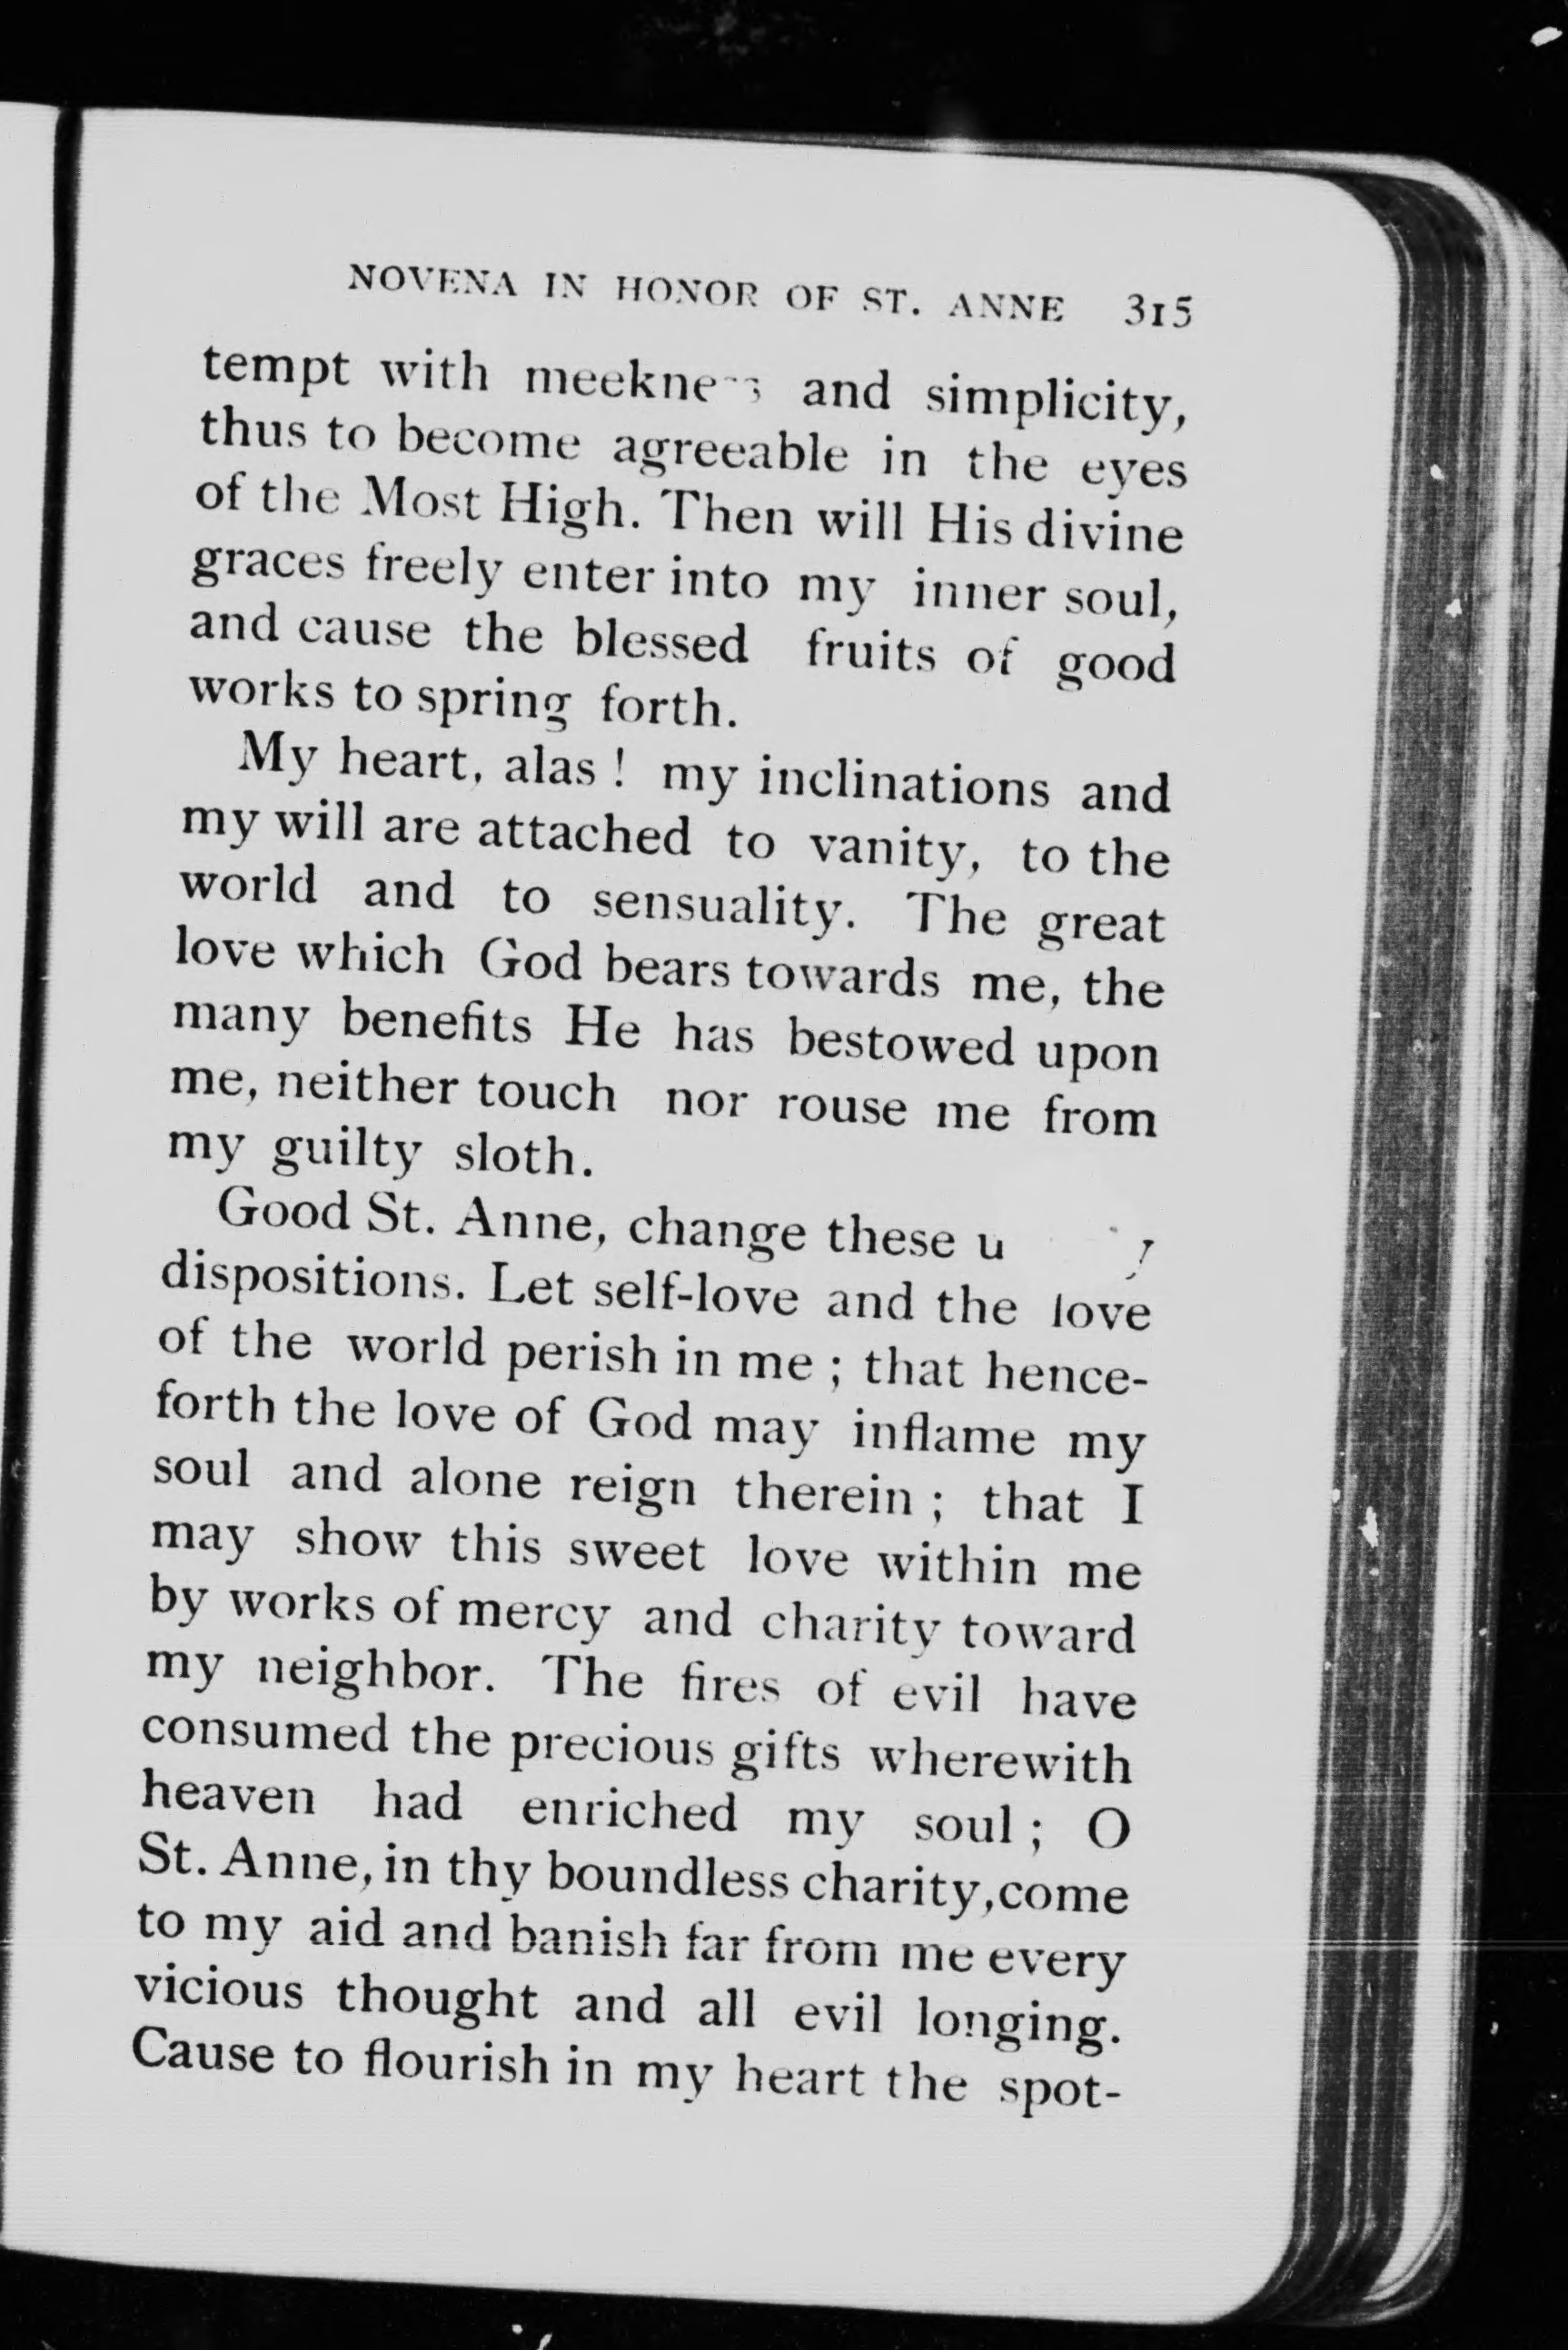 NOVENA IN HONOR OF ST. ANNE 315
tempt with meekness and simplicity,
thus to become agreeable in the eyes
of the Most High. Then will His divine
graces freely enter into my inner soul,
and cause the blessed fruits of good
works to spring forth.
My heart, alas ! my inclinations and
my will are attached to vanity, to the
world and to sensuality. The great
love which God bears towards me, the
many benefits He has bestowed upon
me, neither touch nor rouse me from
my guilty sloth.
Good St. Anne, change these
dispositions. Let self-love and the love
of the world perish in me ; that hence-
forth the love of God may inflame my
soul and alone reign therein ; that I
may show this sweet love within me
by works of mercy and charity toward
my neighbor. The fires of evil have
consumed the precious gifts wherewith
heaven had enriched my soul ; O
St. Anne, in thy boundless charity,come
to my aid and banish far from me every
vicious thought and all evil longing.
Cause to flourish in my heart the spot-